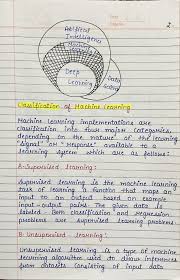 2
Artificial
Intelligence
Machine
Learning
Deep
Learning
Data
Science
Classification of Machine Learning
Machine learning implementations are
classification into four major categories,
depending on the nature of the learning
"signal" or "response" available to a
learning system which are as follows:
A. Supervised learning:
Supervised learning is the machine learning
task of learning a function that maps an
input to an output based on example
input-output pairs. The given data is
labeled. Both classification and regression
problems are supervised learning problems.
B. Unsupervised learning:
Unsupervised learning is a type of machine
learning algorithm used to draw inferences
from datasets consisting of input data